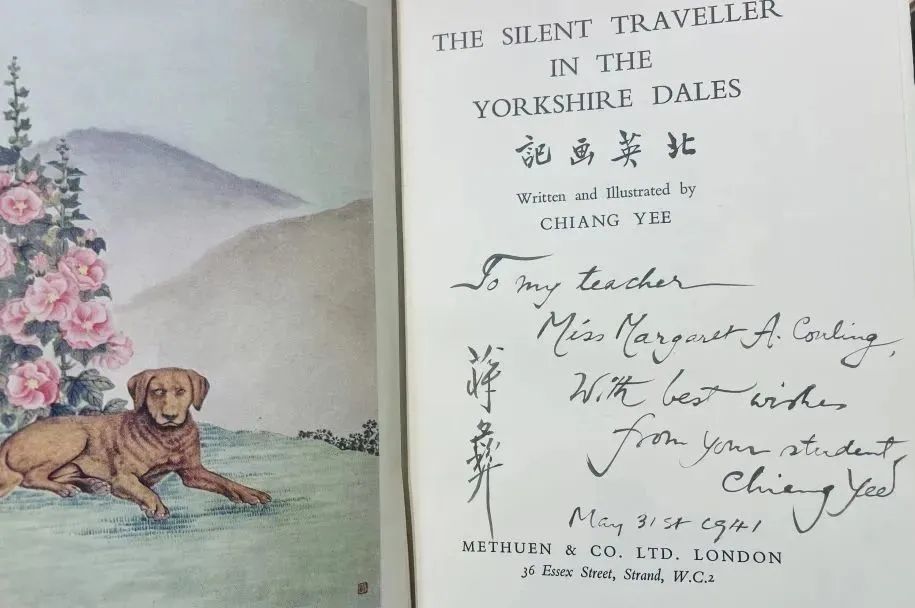 THE SILENT TRAVELLER
IN THE
YORKSHIRE DALES
北英画記
Written and Illustrated by
CHIANG YEE
To my teacher
Miss Margaret A. Couling,
With best wishes
from your student,
Chiang Yee
蔣彝
May 31st 1941
METHUEN & CO. LTD. LONDON
36 Essex Street, Strand, W.C.2